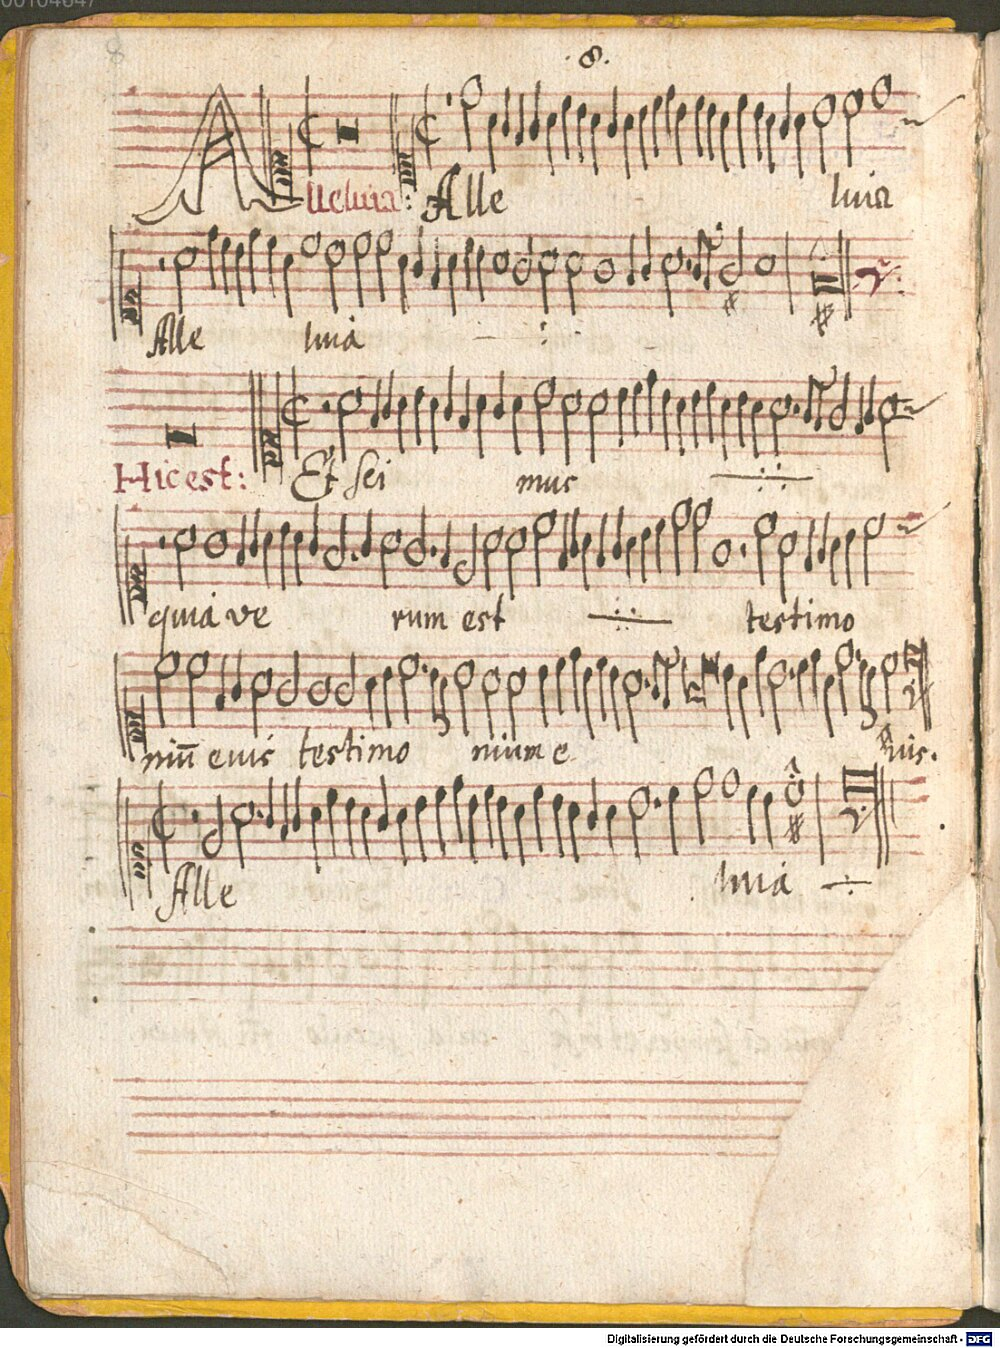 00104647
8
8.
Alleluia: Alle luia
Alle luia
Hic est: Et sci mus
quia ve rum est testimo
niū eius testimo nium e ius.
Alle luia
Digitalisierung gefördert durch die Deutsche Forschungsgemeinschaft - DFG